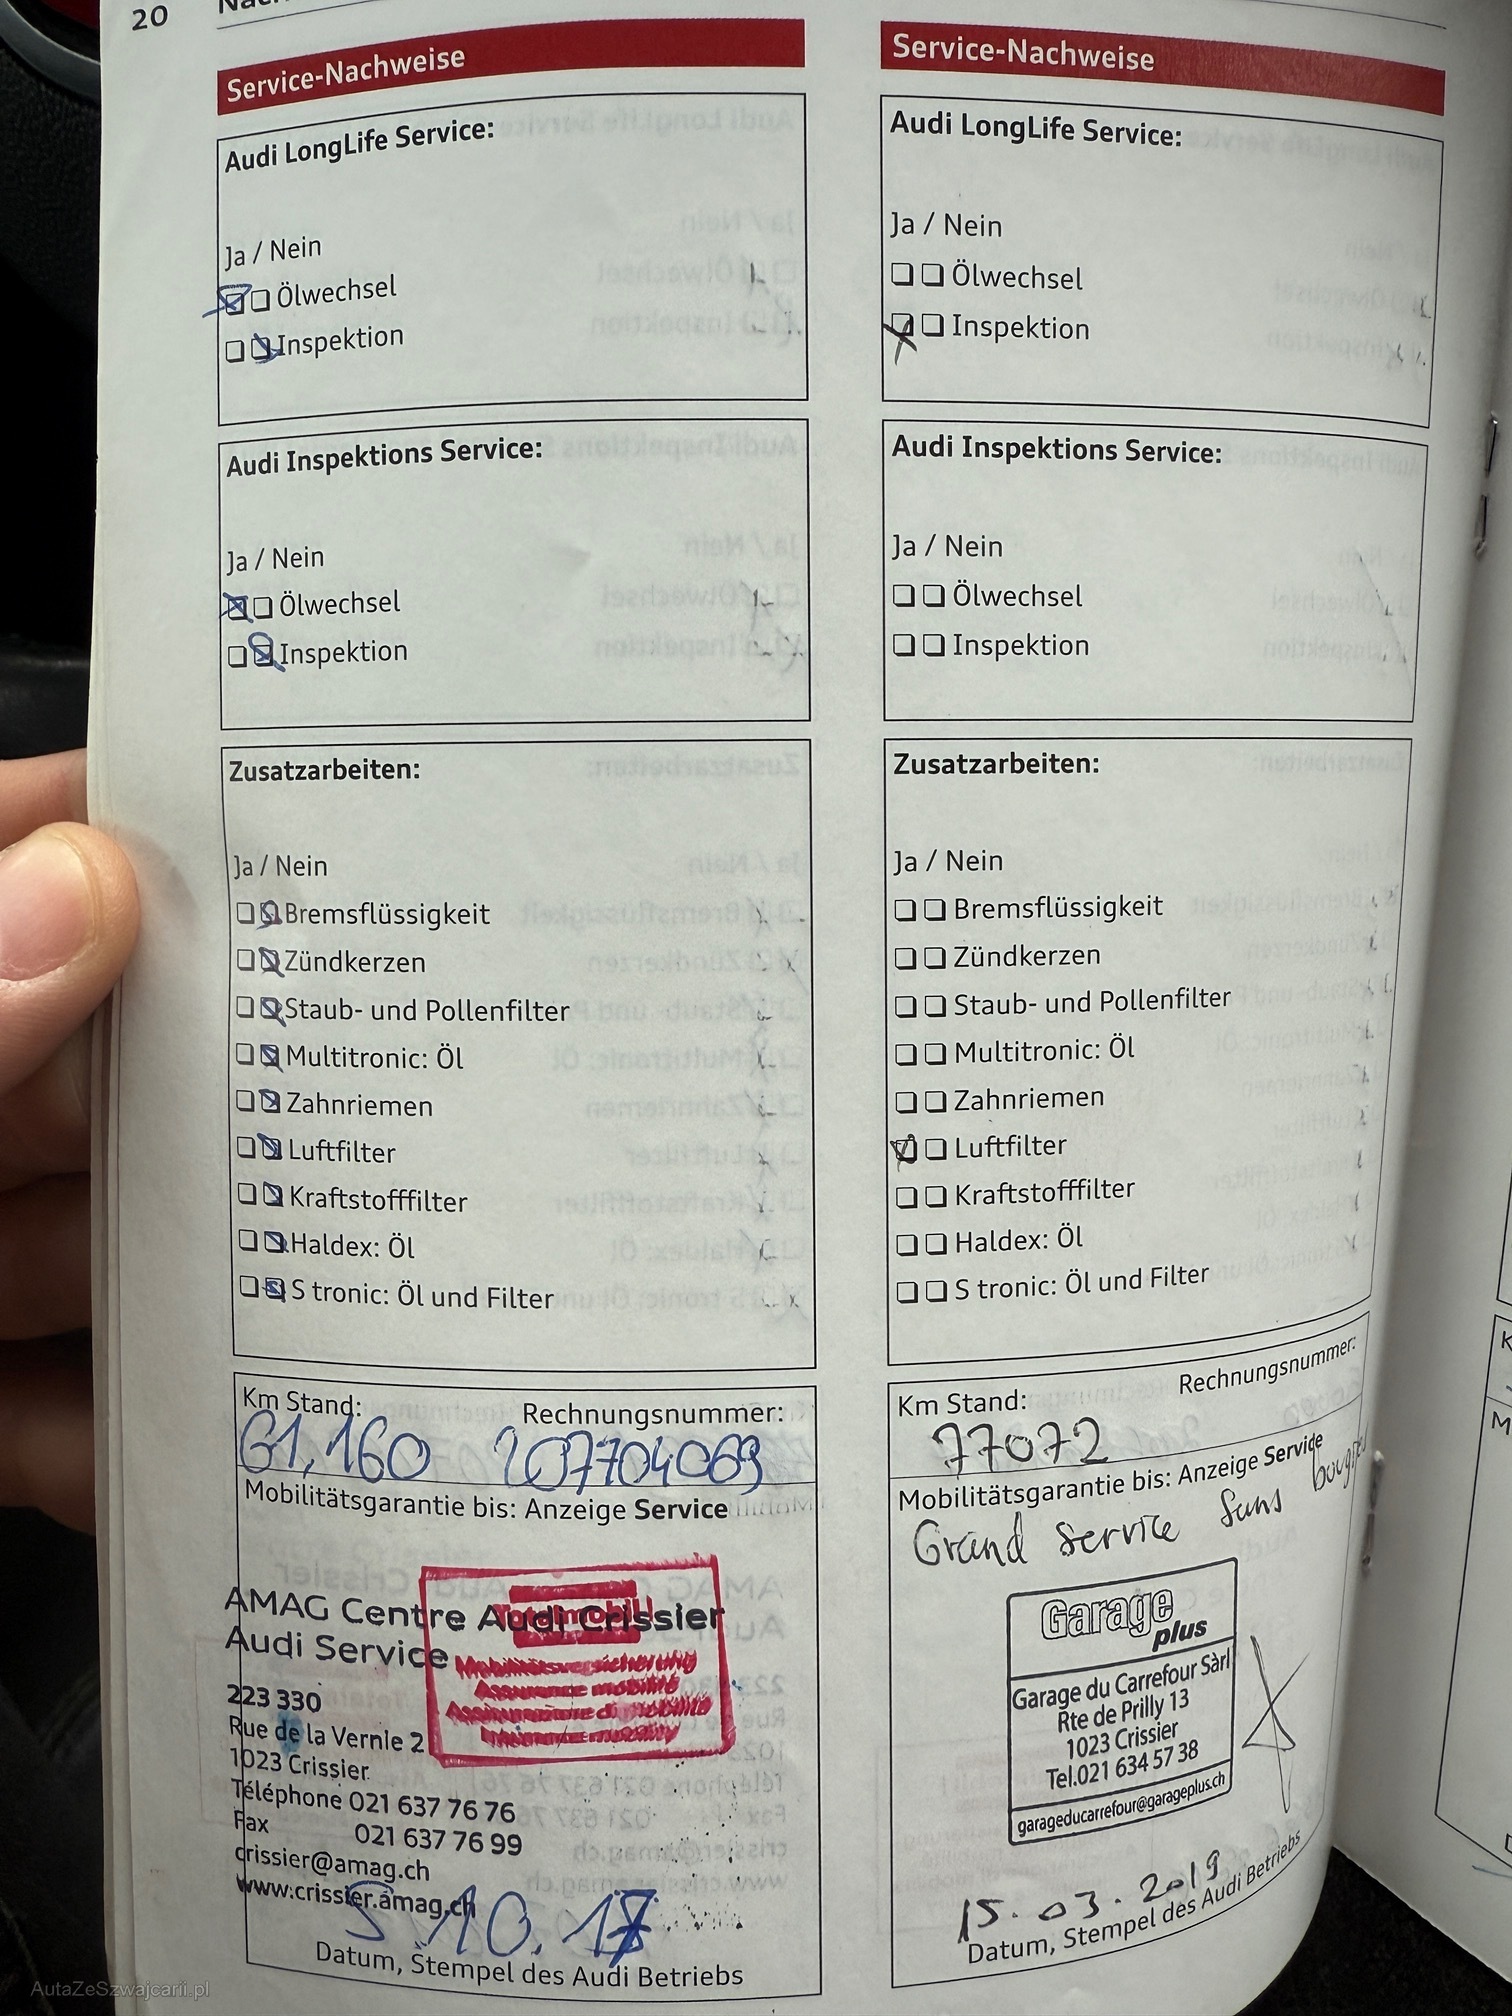 20
Service-Nachweise
Audi LongLife Service:
Ja / Nein
Ölwechsel
Inspektion
Audi Inspektions Service:
Ja / Nein
Ölwechsel
Inspektion
Zusatzarbeiten:
Ja / Nein
Bremsflüssigkeit
Zündkerzen
Staub- und Pollenfilter
Multitronic: Öl
Zahnriemen
Luftfilter
Kraftstofffilter
Haldex: Öl
S tronic: Öl und Filter
Km Stand: Rechnungsnummer:
61,160 207704069
Mobilitätsgarantie bis: Anzeige Service
AMAG Centre Audi Crissier
Audi Service
223 330
Rue de la Vernie 2
1023 Crissier
Téléphone 021 637 76 76
Fax 021 637 76 99
crissier@amag.ch
www.crissier.amag.ch
Totalmobil!
Mobilitätsversicherung
Assurance mobilité
Assicurazione di mobilità
5.10.17
Datum, Stempel des Audi Betriebs
Service-Nachweise
Audi LongLife Service:
Ja / Nein
Ölwechsel
Inspektion
Audi Inspektions Service:
Ja / Nein
Ölwechsel
Inspektion
Zusatzarbeiten:
Ja / Nein
Bremsflüssigkeit
Zündkerzen
Staub- und Pollenfilter
Multitronic: Öl
Zahnriemen
Luftfilter
Kraftstofffilter
Haldex: Öl
S tronic: Öl und Filter
Km Stand: Rechnungsnummer:
77072
Mobilitätsgarantie bis: Anzeige Service
Grand service sans
Garage
plus
Garage du Carrefour Sàrl
Rte de Prilly 13
1023 Crissier
Tel.021 634 57 38
garageducarrefour@garageplus.ch
15.03.2019
Datum, Stempel des Audi Betriebs
AutaZeSzwajcarii.pl